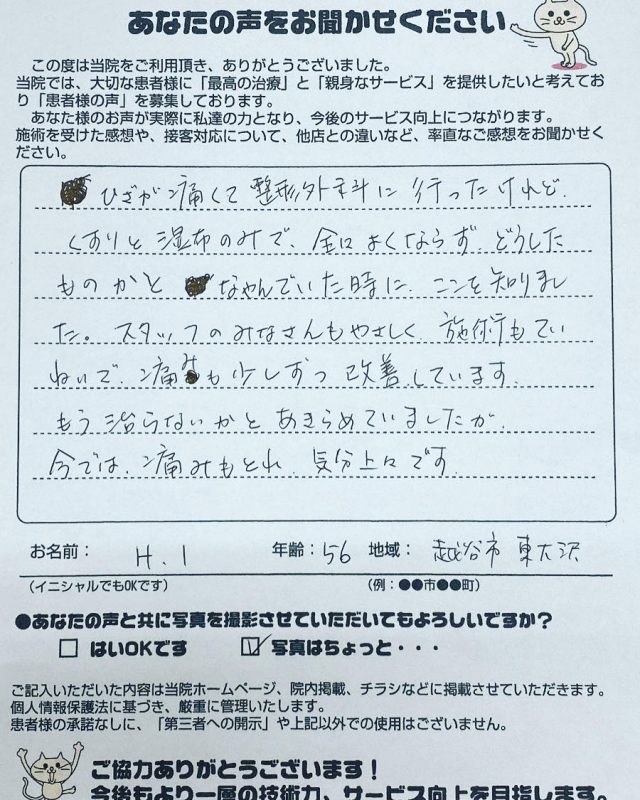 あなたの声をお聞かせください
この度は当院をご利用頂き、ありがとうございました。
当院では、大切な患者様に「最高の治療」と「親身なサービス」を提供したいと考えてお
り「患者様の声」を募集しております。
あなた様のお声が実際に私達の力となり、今後のサービス向上につながります。
施術を受けた感想や、接客対応について、他店との違いなど、率直なご感想をお聞かせく
ださい。
ひざが痛くて整形外科に行ったけれど、
くすりと湿布のみで、全然よくならず、どうした
ものかと なやんでいた時に、ここを知りまし
た。スタッフのみなさんもやさしく、施術もてい
ねいで、痛みも少しずつ改善しています。
もう治らないかとあきらめていましたが、
今では、痛みもとれ、気分上々です。
お名前： H.I 年齢：56 地域： 越谷市 東大沢
（イニシャルでもOKです） （例：●●市●●町）
●あなたの声と共に写真を撮影させていただいてもよろしいですか？
□ はいOKです ☑ 写真はちょっと・・・
ご記入いただいた内容は当院ホームページ、院内掲載、チラシなどに掲載させていただきます。
個人情報保護法に基づき、厳重に管理いたします。
患者様の承諾なしに、「第三者への開示」や上記以外での使用はございません。
ご協力ありがとうございます！
今後もより一層の技術力、サービス向上を目指します。